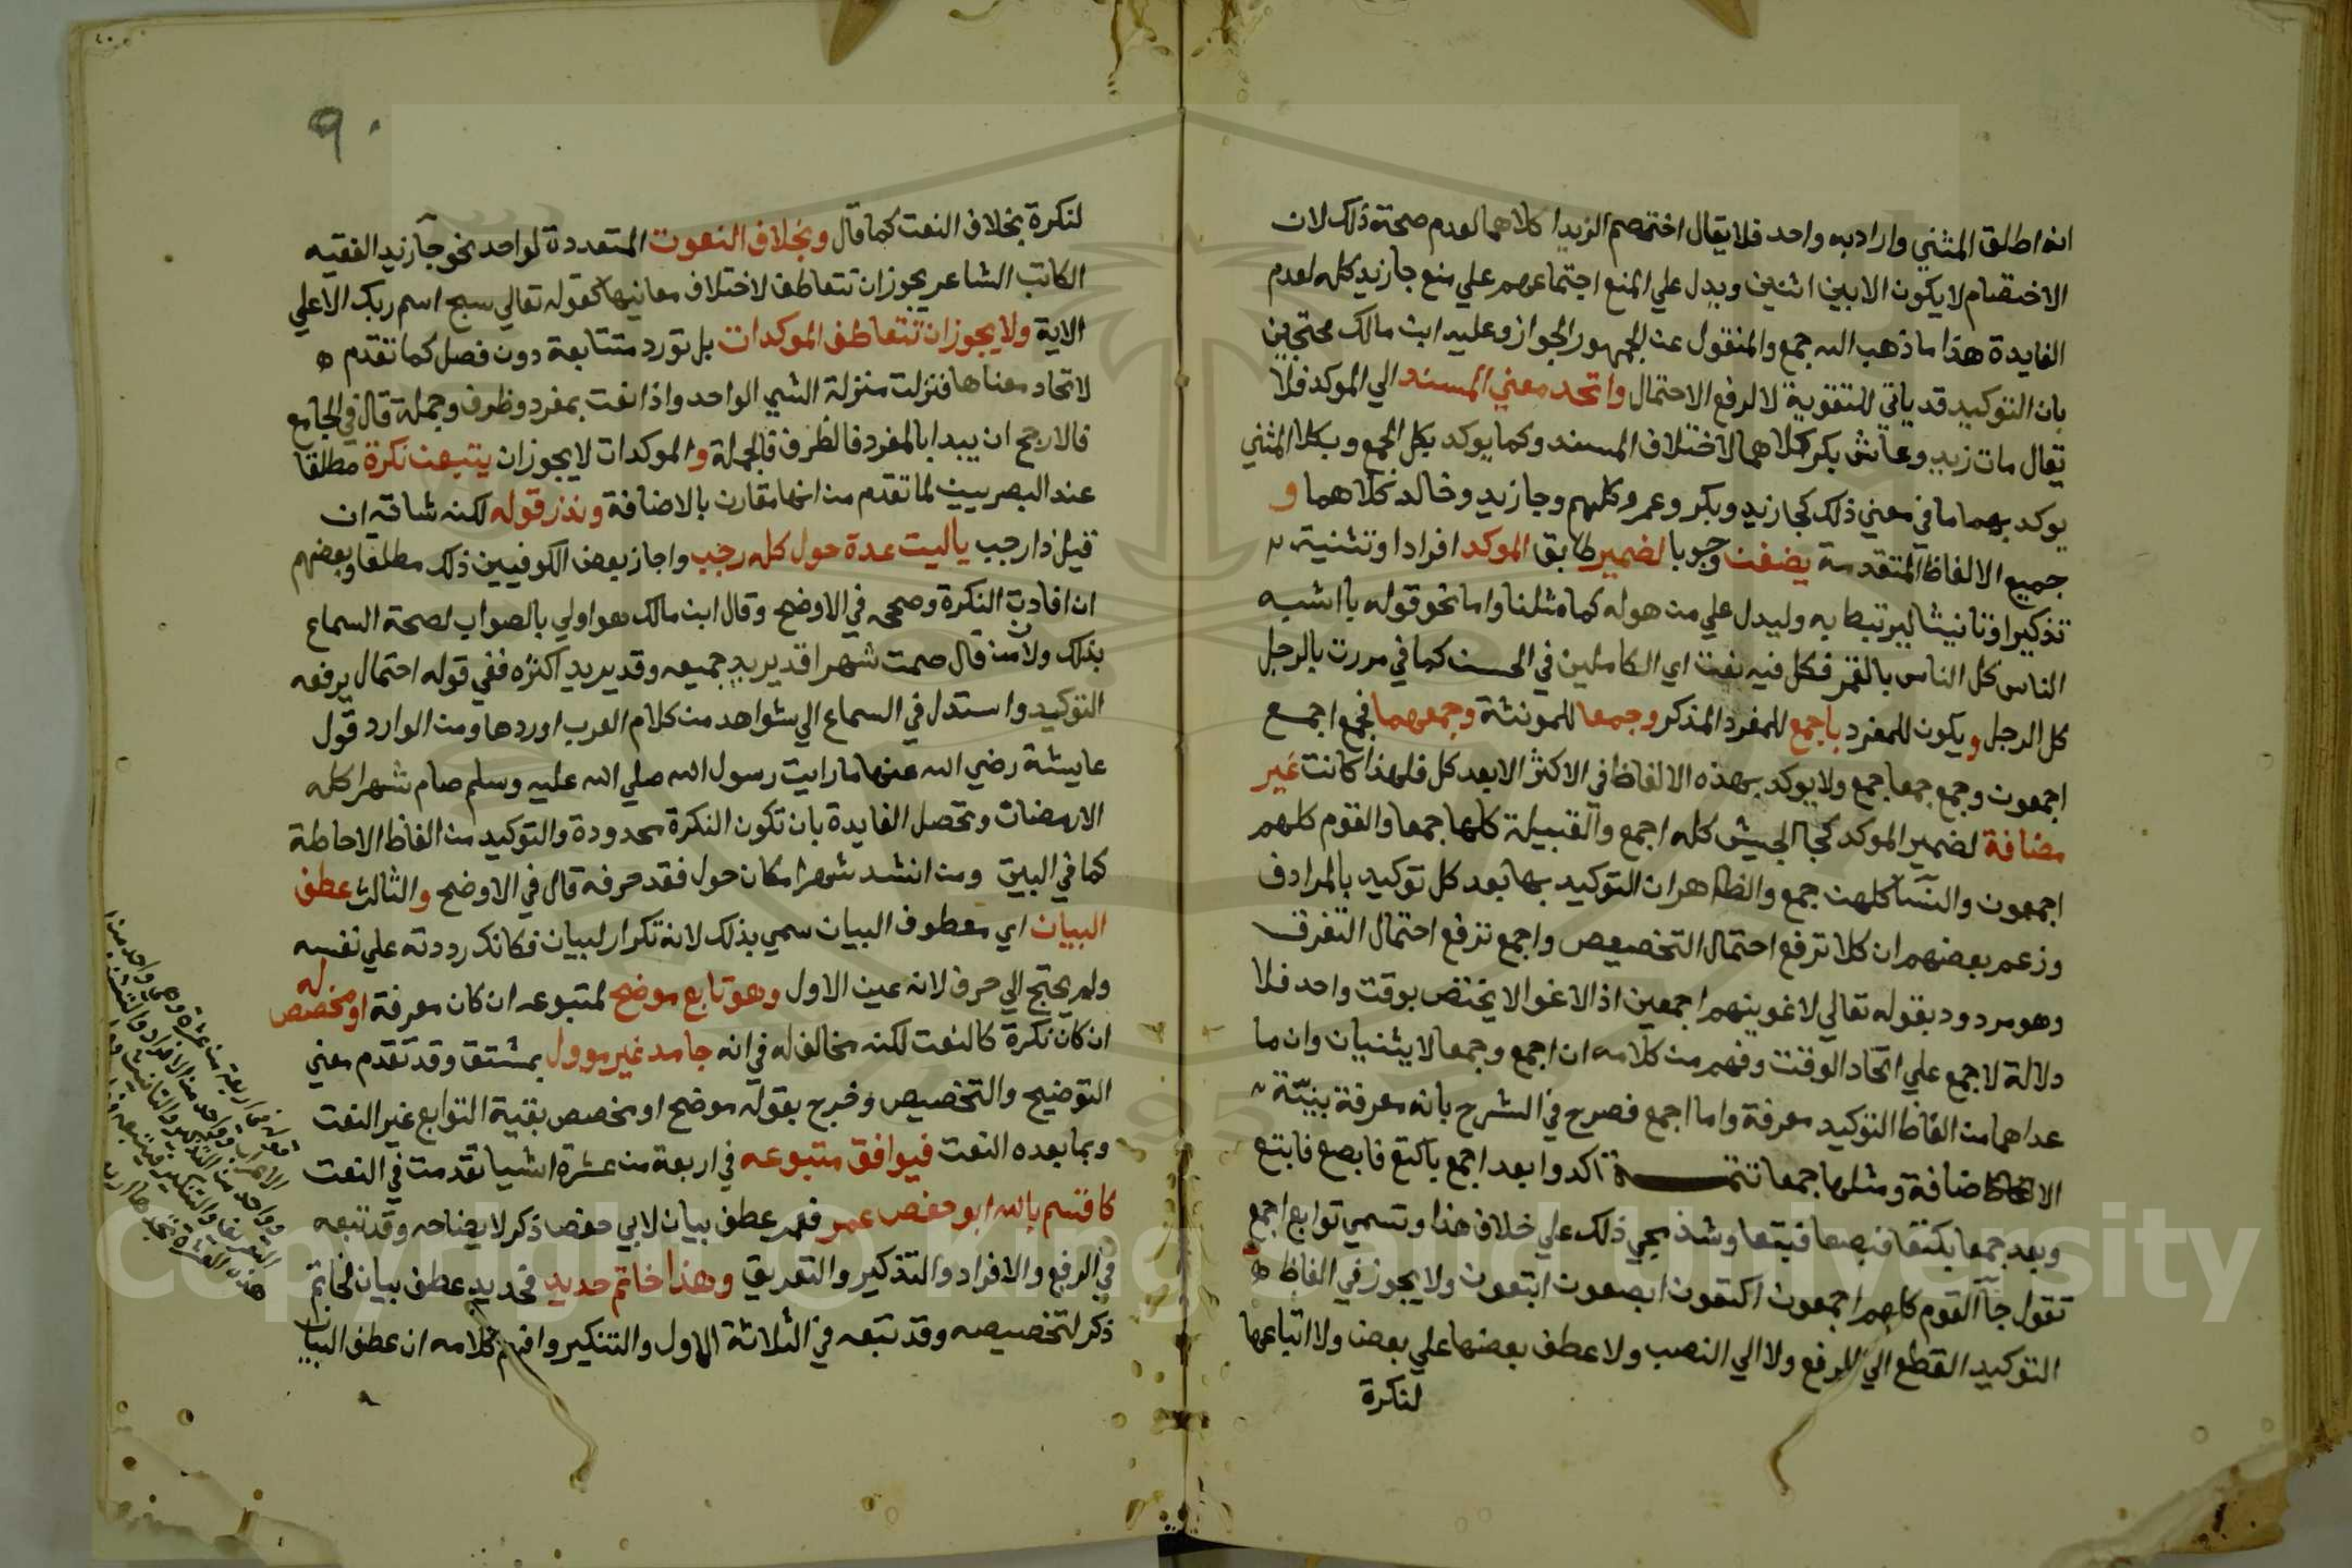 انه اطلق المثني واراد به واحد فلا يقال اختصم الزيدا كلاهما لعدم صحة ذلك لان
الاختصام لا يكون الا بين اثنين ويدل علي المنع اجتماعهم علي منع جا زيد كله لعدم
الفايدة هذا ما ذهب اليه جمع والمنقول عن الجمهور الجواز وعليه ابن مالك محتجين
بان التوكيد قد ياتي للتقوية لا لرفع الاحتمال واتحد معني المسند الي الموكد فلا
يقال مات زيد وعاش بكر كلاهما لاختلاف المسند وكما يوكد بكل الجمع وبكلا المثني
يوكد بهما ما في معني ذلك كجا زيد وبكر وعمرو كلهم وجا زيد وخالد كلاهما و
جميع الالفاظ المتقدمة يضفن وجوبا لضمير طابق الموكد افرادا وتثنية
تذكيرا وتانيثا ليرتبط به وليدل علي من هو له كما مثلنا واما نحو قوله يا اشبه
الناس كل الناس بالقمر فكل فيه نعت اي الكاملين في الحسن كما في مررت بالرجل
كل الرجل ويكون للمفرد باجمع للمفرد المذكر وجمعا للمونثة وجمعهما فجمع اجمع
اجمعون وجمع جمعا جمع ولا يوكد بهذه الالفاظ في الاكثر الا بعد كل فلهذا كانت غير
مضافة لضمير الموكد كجا الجيش كله اجمع والقبيلة كلها جمعا والقوم كلهم
اجمعون والنسا كلهن جمع والظاهر ان التوكيد بها بعد كل توكيد بالمرادف
وزعم بعضهم ان كلا ترفع احتمال التخصيص واجمع ترفع احتمال التفرق
وهو مردود بقوله تعالي لاغوينهم اجمعين اذ الاغوا لا يختص بوقت واحد فلا
دلالة لاجمع علي اتحاد الوقت وفهم من كلامه ان اجمع وجمعا لا يثنيان وان ما
عداهما من الفاظ التوكيد معرفة واما اجمع فصرح في الشرح بانه معرفة بنيّة
الاضافة ومثلها جمعا تتمــة اكدوا بعد اجمع باكتع فابصع فابتع
وبعد جمعا بكتعا فبصعا فبتعا وشذ مجي ذلك علي خلاف هذا وتسمي توابع اجمع
تقول جا القوم كلهم اجمعون اكتعون ابصعون ابتعون ولا يجوز في الفاظ
التوكيد القطع الي الرفع ولا الي النصب ولا عطف بعضها علي بعض ولا اتباعها
لنكرة
٩٠
لنكرة بخلاف النعت كما قال وبخلاف النعوت المتعددة لواحد نحو جا زيد الفقيه
الكاتب الشاعر يجوز ان تتعاطف لاختلاف معانيها كقوله تعالي سبح اسم ربك الاعلي
الاية ولا يجوز ان تتعاطف الموكدات بل تورد متتابعة دون فصل كما تقدم
لاتحاد معناها فنزلت منزلة الشي الواحد واذا نعت بمفرد وظرف وجملة قال في الجامع
فالارجح ان يبدا بالمفرد فالظرف فالجملة والموكدات لا يجوز ان يتبعن نكرة مطلقا
عند البصريين لما تقدم من انها مقارن بالاضافة وندر قوله لكنه شاقه ان
قيل ذا رجب يا ليت عدة حول كله رجب واجاز بعض الكوفيين ذلك مطلقا وبعضهم
ان افادت النكرة وصححه في الاوضح وقال ابن مالك هو اولي بالصواب لصحة السماع
بذلك ولان من قال صمت شهرا قد يريد جميعه وقد يريد اكثره ففي قوله احتمال يرفعه
التوكيد واستدل في السماع الي بشواهد من كلام العرب اوردها ومن الوارد قول
عايشة رضي الله عنها ما رايت رسول الله صلي الله عليه وسلم صام شهرا كله
الا رمضان وتحصل الفايدة بان تكون النكرة محدودة والتوكيد من الفاظ الاحاطة
كما في البيت ومن انشد شهرا مكان حول فقد حرفه قال في الاوضح والثالث عطف
البيان اي معطوف البيان سمي بذلك لانه تكرار لبيان فكانك رددته علي نفسه
ولم يحتج الي حرف لانه عين الاول وهو تابع موضح لمتبوعه ان كان معرفة او مخصص له
ان كان نكرة كالنعت لكنه مخالف له في انه جامد غير موول بمشتق وقد تقدم معني
التوضيح والتخصيص وخرج بقوله موضح او مخصص بقية التوابع غير النعت
وبما بعده النعت فيوافق متبوعه في اربعة من عشرة اشيا تقدمت في النعت
كاقسم بالله ابو حفص عمر فعمر عطف بيان لابي حفص ذكر لايضاحه وقد تبعه
في الرفع والافراد والتذكير والتعريف وهذا خاتم حديد فحديد عطف بيان لخاتم
ذكر لتخصيصه وقد تبعه في الثلاثة الاول والتنكير وافهم كلامه ان عطف البيان
اربعة من عشرة وهي واحد من
الاعراب وواحد من الافراد والتثنية
وواحد من التذكير والتانيث
التعريف والتنكير فيتبعه
هذه العشرة